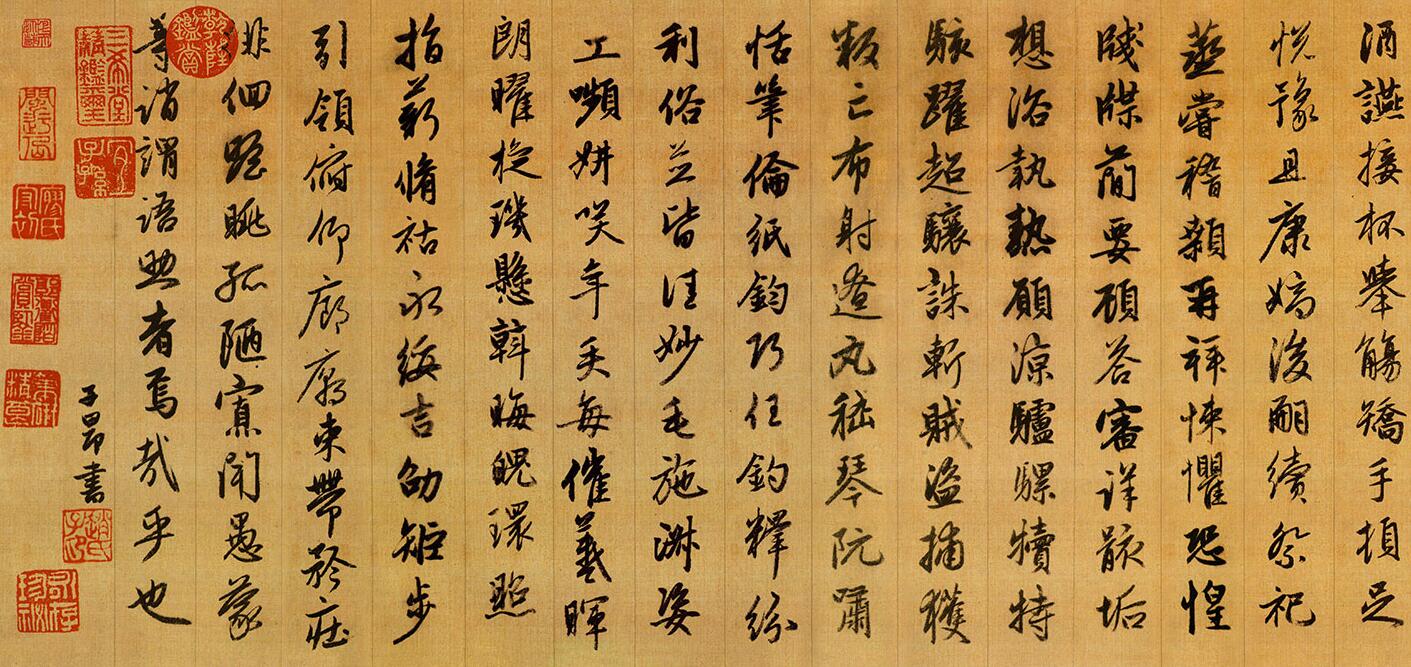 酒讌接杯舉觴矯手頓足
悅豫且康嫡後嗣續祭祀
蒸嘗稽顙再拜悚懼恐惶
牋牒簡要顧答審詳骸垢
想浴執熱願涼驢騾犢特
駭躍超驤誅斬賊盜捕獲
叛亡布射遼丸嵇琴阮嘯
恬筆倫紙鈞巧任釣釋紛
利俗並皆佳妙毛施淑姿
工嚬妍笑年矢每催羲暉
朗曜旋璣懸斡晦魄環照
指薪脩祜永綏吉劭矩步
引領俯仰廊廟束帶矜莊
徘徊瞻眺孤陋寡聞愚蒙
等誚謂語助者焉哉乎也
子昂書
乾隆鑑賞
三希堂精鑑璽
宜子孫